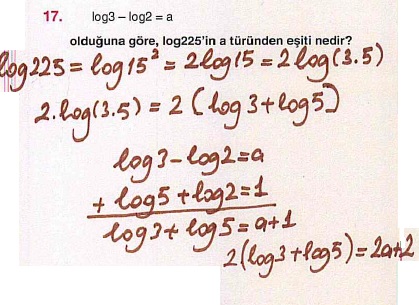 17. log3 – log2 = a
olduğuna göre, log225'in a türünden eşiti nedir?
log225 = log15² = 2log15 = 2log(3.5)
2.log(3.5) = 2(log3+log5)
log3-log2=a
+ log5+log2=1
log3+log5=a+1
2(log3+log5)=2a+2